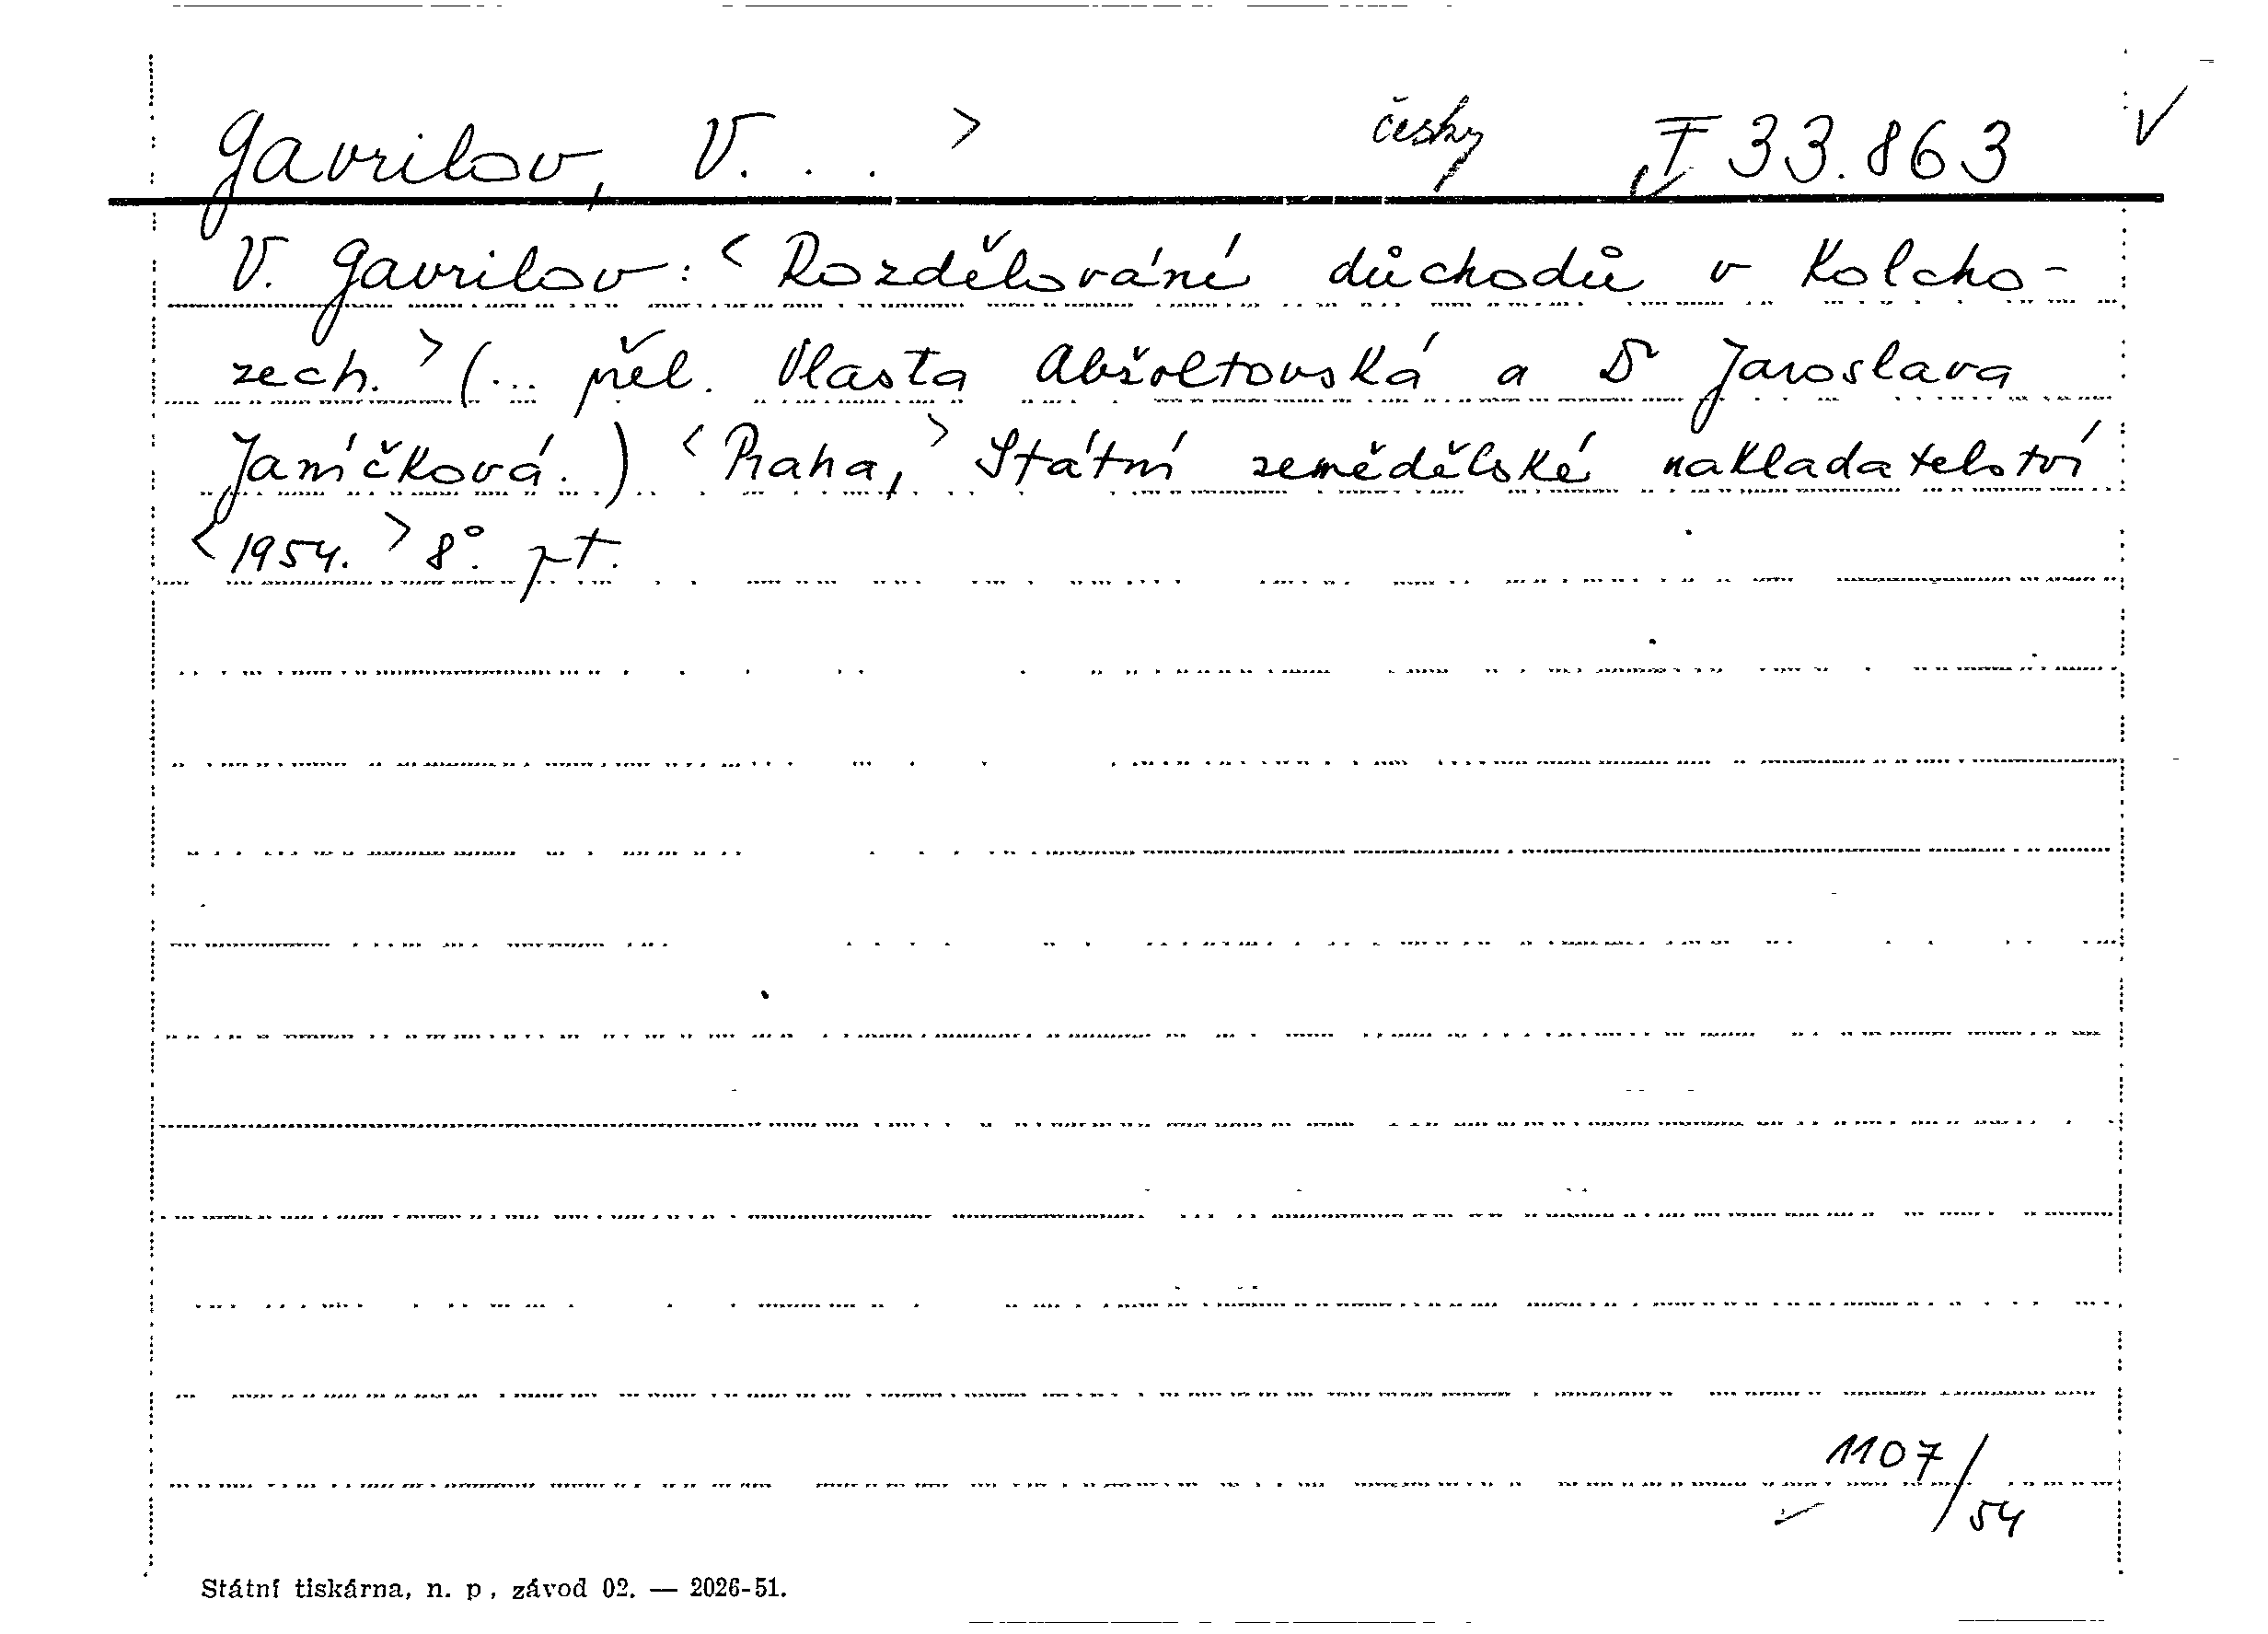 Gavrilov, V. . . > česky I 33.863
V. Gavrilov: <Rozdělování důchodů v Kolcho-
zech.> (... přel. Vlasta Abšoltovská a Dr Jaroslava
Janíčková.) <Praha,> Státní zemědělské nakladatelství
<1954.> 8°. pt.
1107/54
Státní tiskárna, n. p., závod 02. — 2026-51.